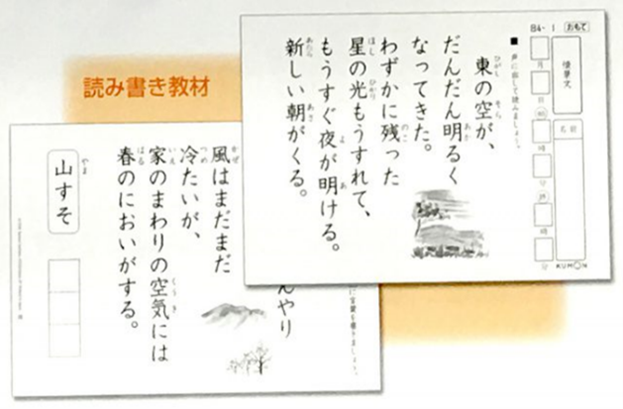 読み書き教材
B4-1 おもて
情景文
名前
月
日
時
分
時
分
KUMON
■ 声に出して読みましょう。
東の空が、
だんだん明るく
なってきた。
わずかに残った
星の光もうすれて、
もうすぐ夜が明ける。
新しい朝がくる。
んやり
風はまだまだ
冷たいが、
家のまわりの空気には
春のにおいがする。
山すそ